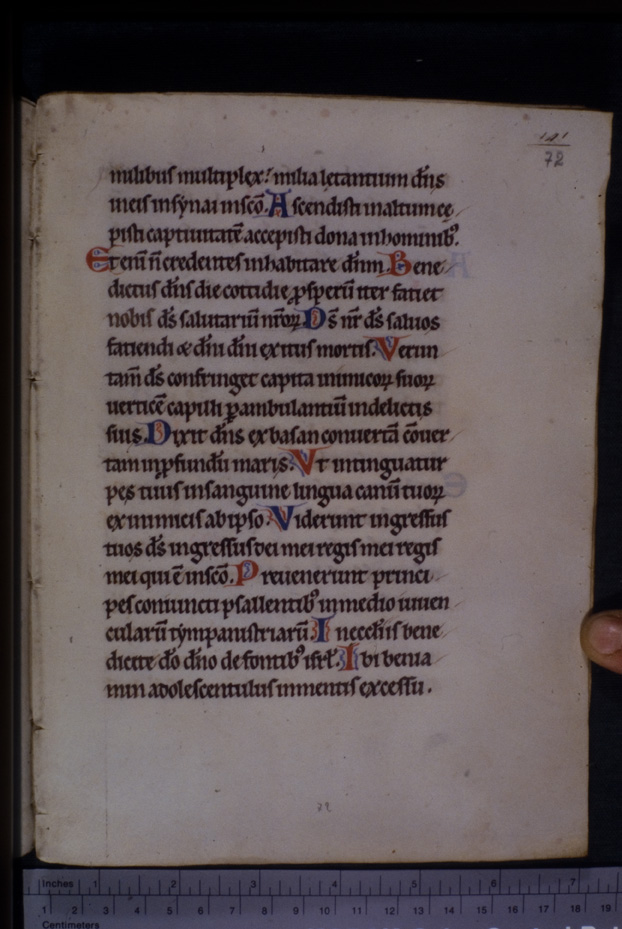 141
72
milibus multiplex! milia letantium dn̄s
ineis insẏnai insc̄o. Ascendisti inaltum ce
pisti captiuitatē accepisti dona inhominibꝰ.
Eteni̅ n̄ credentes inhabitare dn̄m. Bene
dictus dn̄s die cottidie ꝓsperū iter faciet
nobis ds̄ salutariū nr̄oꝝ Ds̄ nr̄ ds̄ saluos
faciendi & dn̄i dn̄i exitus mortis. Verun
tam̄ ds̄ confringet capita inimicoꝝ suoꝝ
uerticē capilli ꝑambulantiū indelictis
suis. Dixit dn̄s exbasan conuertā cōuer
tam inꝓfundū maris. Vt intinguatur
pes tuus insanguine lingua canū tuoꝝ
exinimicis abipso. Viderunt ingressus
tuos ds̄ ingressus dei mei regis mei regis
mei qui ē insc̄o. Preuenerunt princi
pes coniuncti psallentibꝰ inmedio iuuen
cularū tẏmpanistriarū. In ecclīis bene
dicite dō dn̄o de fontibꝰ isrl̄. Ibi benia
min adolescentulus inmentis excessu.
72
Inches 1 2 3 4 5 6 7
1 2 3 4 5 6 7 8 9 10 11 12 13 14 15 16 17 18 19
Centimeters